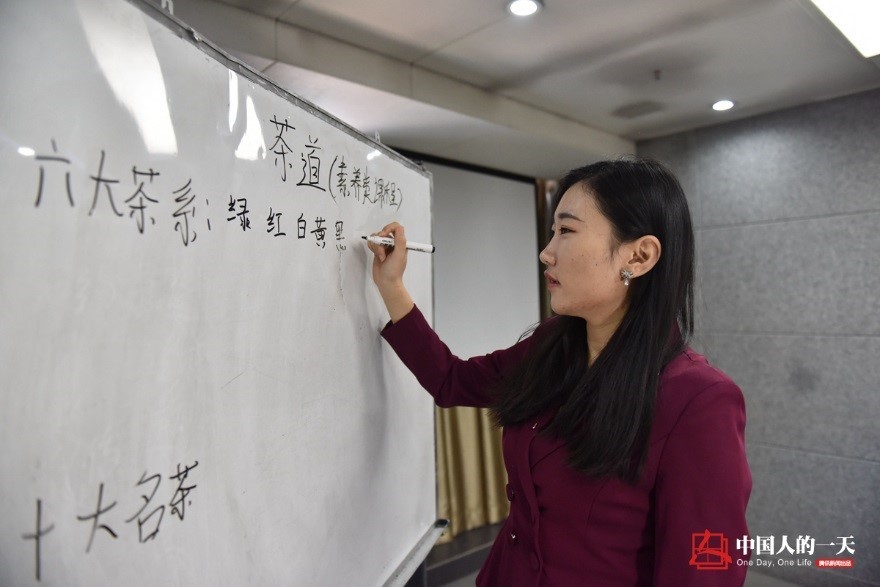 茶道(素养类课程)
六大茶系:绿 红 白 黄 黑
十大名茶
中国人的一天
One Day, One Life
腾讯新闻出品